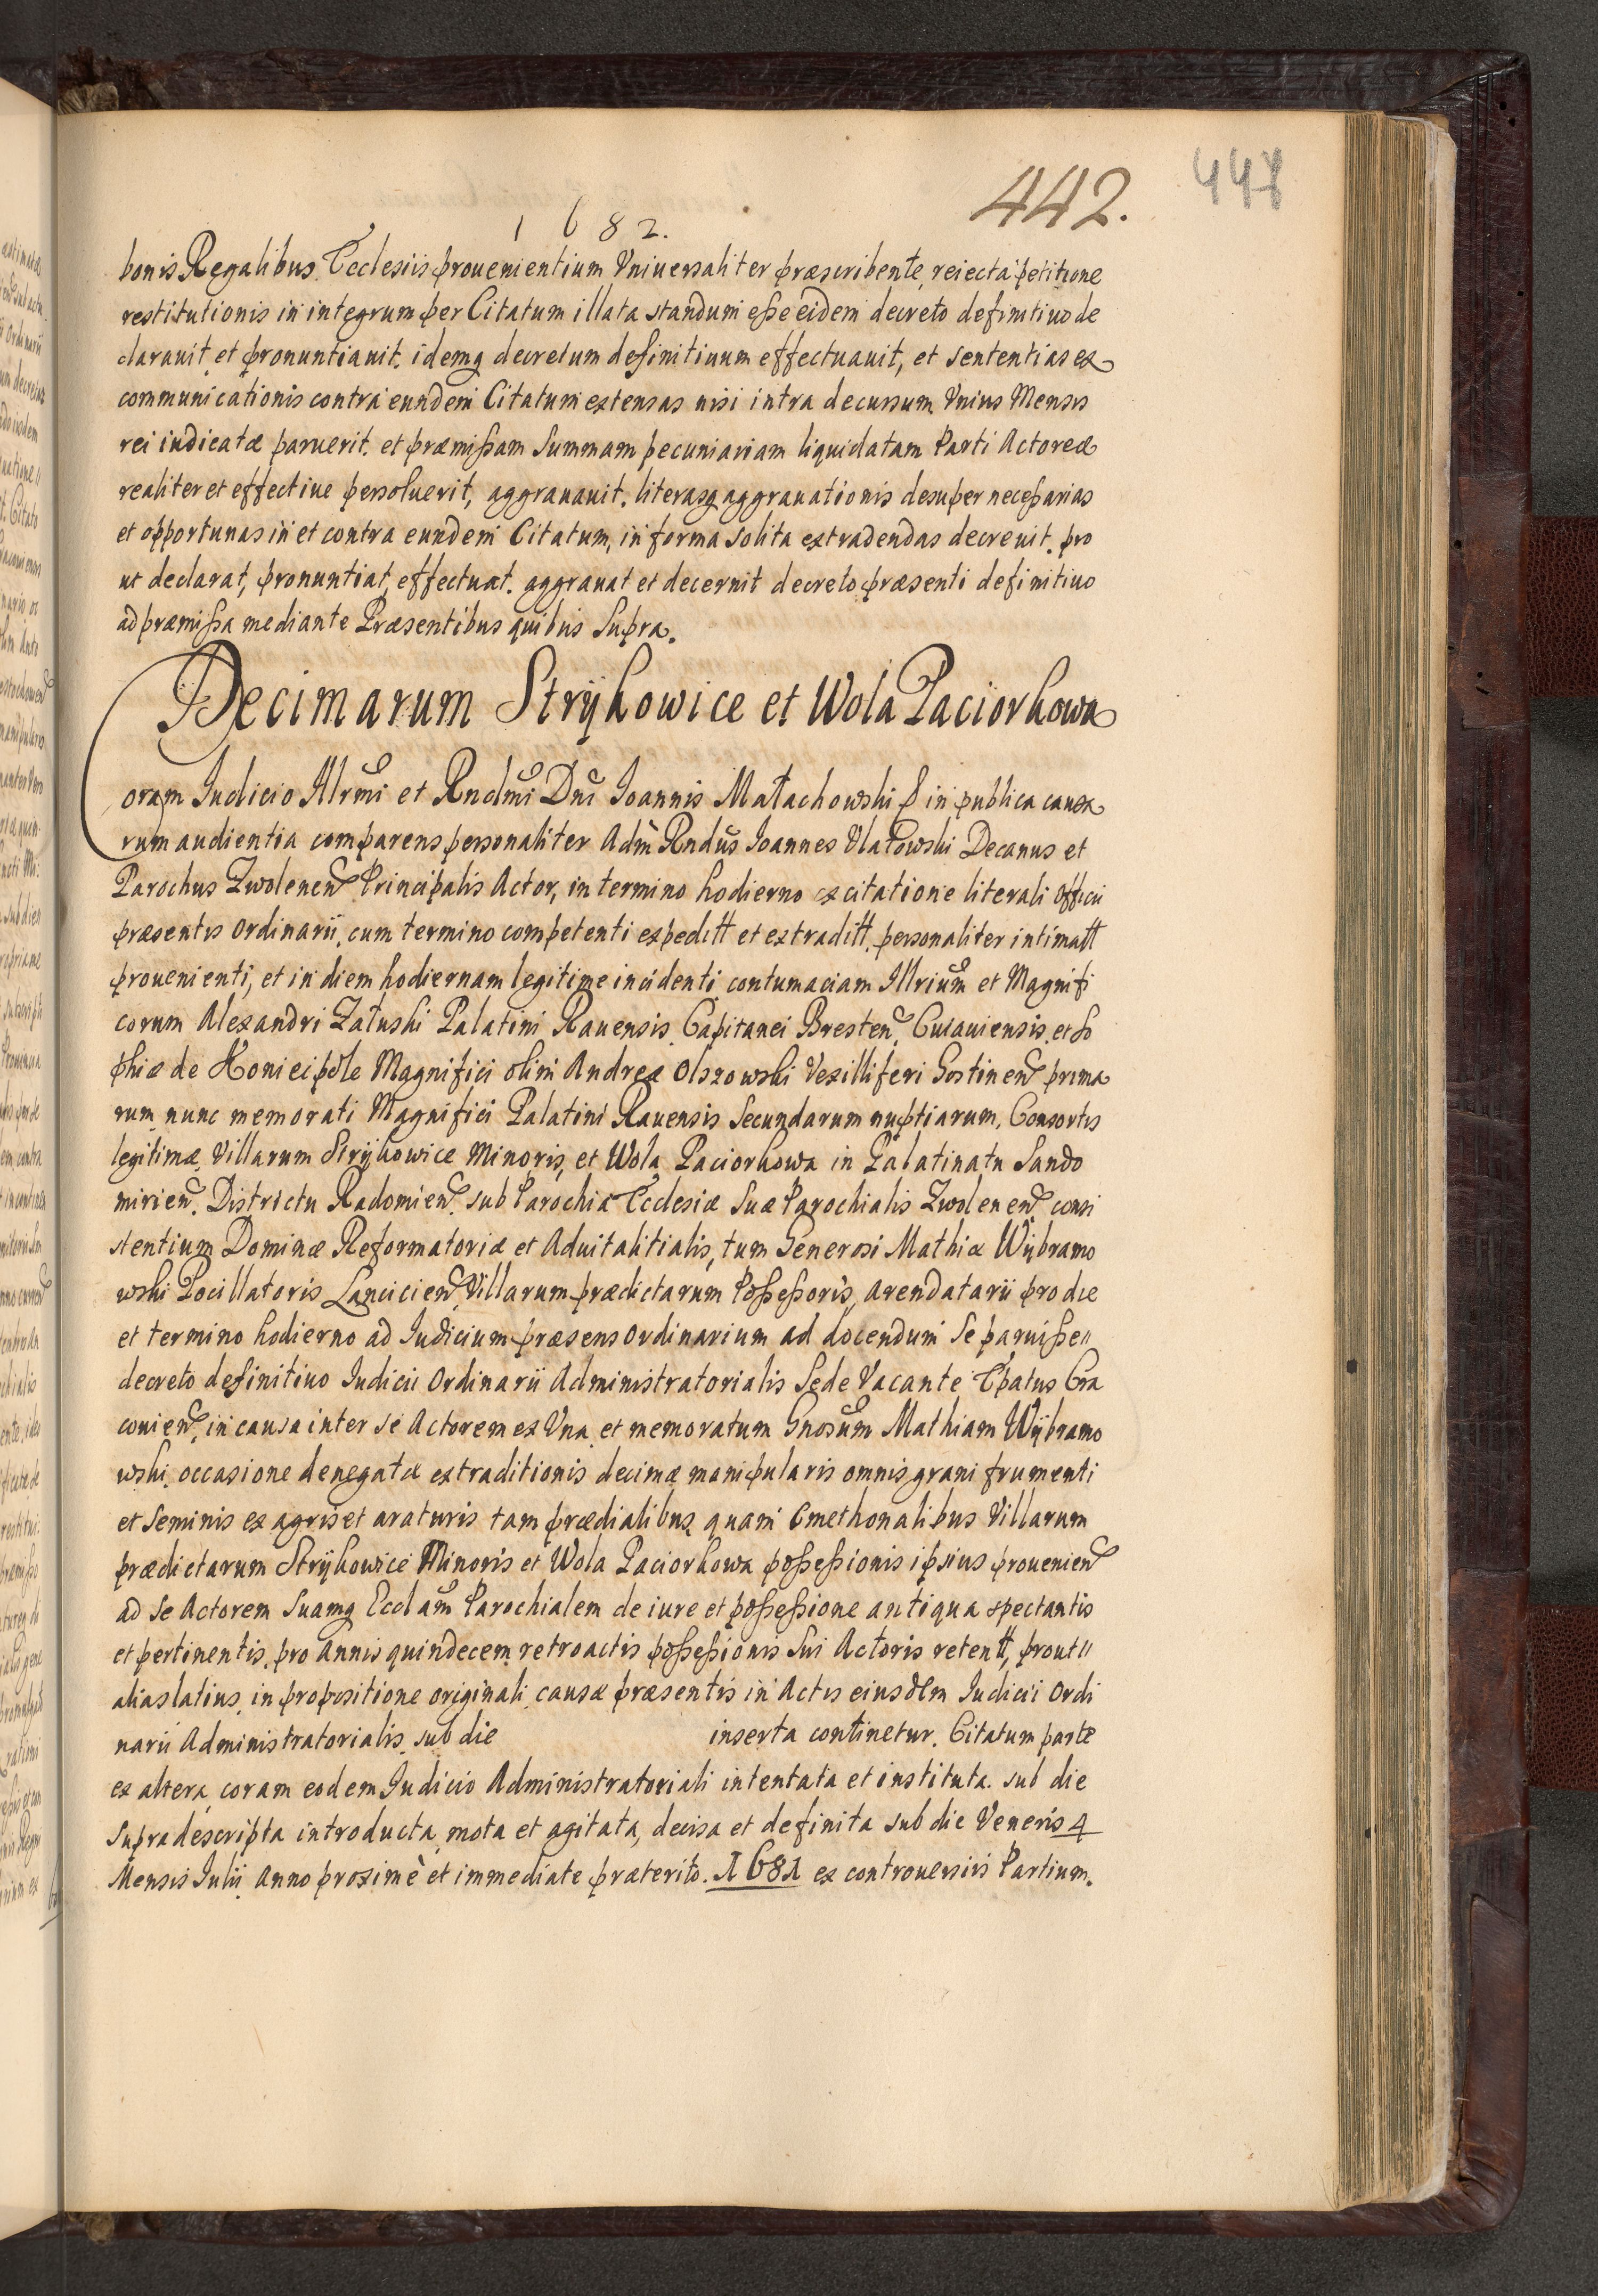 442. 447
1682.
bonis Regalibus Ecclesiis prouenientium Vniuersaliter præscribente, reiecta petitione
restitutionis in integrum per Citatum illata standum eße eidem decreto definitiuo de
clarauit, et pronuntiauit. idemq decretum definitiuum effectuauit, et sententias ex
communicationis contra eundem Citatum extensas nisi intra decursum Vnius Mensis
rei iudicatæ paruerit. et præmißam Summam pecuniariam liquidatam Parti Actoreæ
realiter et effectiue persoluerit, aggrauauit. literasq aggrauationis desuper neceßarias
et opportunas in et contra eundem Citatum, in forma solita extradendas decreuit. pro
ut declarat, pronuntiat, effectuat. aggrauat et decernit decreto præsenti definitiuo
ad præmißa mediante Præsentibus quibus Supra.
Decimarum Strÿkowice et Wola Paciorkowa
Coram Iudicio Illrmi et Rndmi Dni Ioannis Małachowski ß in publica causa
rum audientia comparens personaliter Adm Rndus Ioannes Vlatowski Decanus et
Parochus Zwolenen Principalis Actor, in termino hodierno ex citatione literali Officii
præsentis Ordinarii, cum termino competenti expeditt et extraditt, personaliter intimatt
prouenienti, et in diem hodiernam legitime incidenti contumaciam Illrium et Magnifi
corum Alexandri Załuski Palatini Rauensis Capitanei Bresten Cuiauiensis et So
phiæ de Koniecipole Magnifici olim Andreæ Olszowski Vexilliferi Gostinen prima
rum nunc memorati Magnifici Palatini Rauensis Secundarum nuptiarum, Consortis
legitimæ, Villarum Strÿkowice Minoris, et Wola Paciorkowa in Palatinatu Sando
mirien. Districtu Radomien. sub Parochia Ecclesiæ Suæ Parochialis Zwolenen consi
stentium Dominæ Reformatoriæ et Aduitalitialis, tum Generosi Mathiæ Wÿbramo
wski Pocillatoris Lancicien, Villarum prædictarum Poßeßoris, Arendatarii pro die
et termino hodierno ad Iudicium præsens Ordinarium ad docendum Se paruiße
decreto definitiuo Iudicii Ordinarii Administratorialis Sede Vacante Epatus Cra
couien, in causa inter se Actorem ex Vna et memoratum Gnosum Mathiam Wÿbramo
wski occasione denegatæ extraditionis decimæ manipularis omnis grani frumenti
et Seminis ex agris et araturis tam prædialibus quam Cmethonalibus Villarum
prædictarum Strÿkowice Minoris et Wola Paciorkowa poßeßionis ipsius prouenien
ad Se Actorem Suamq Eccl am Parochialem de iure et poßeßione antiqua spectantis
et pertinentis, pro annis quindecem retroactis poßeßionis Sui Actoris retentt, prout
alias latius in propositione originali causæ præsentis in Actis eiusdem Iudicii Ordi
narii Administratorialis sub die inserta continetur. Citatum parte
ex altera coram eodem Iudicio Administratoriali intentata et instituta. sub die
Supradescripta introducta mota et agitata, decisa et definita sub die Veneris 4
Mensis Iulii Anno proximè et immediate præterito. 1681 ex controuersiis Partium.